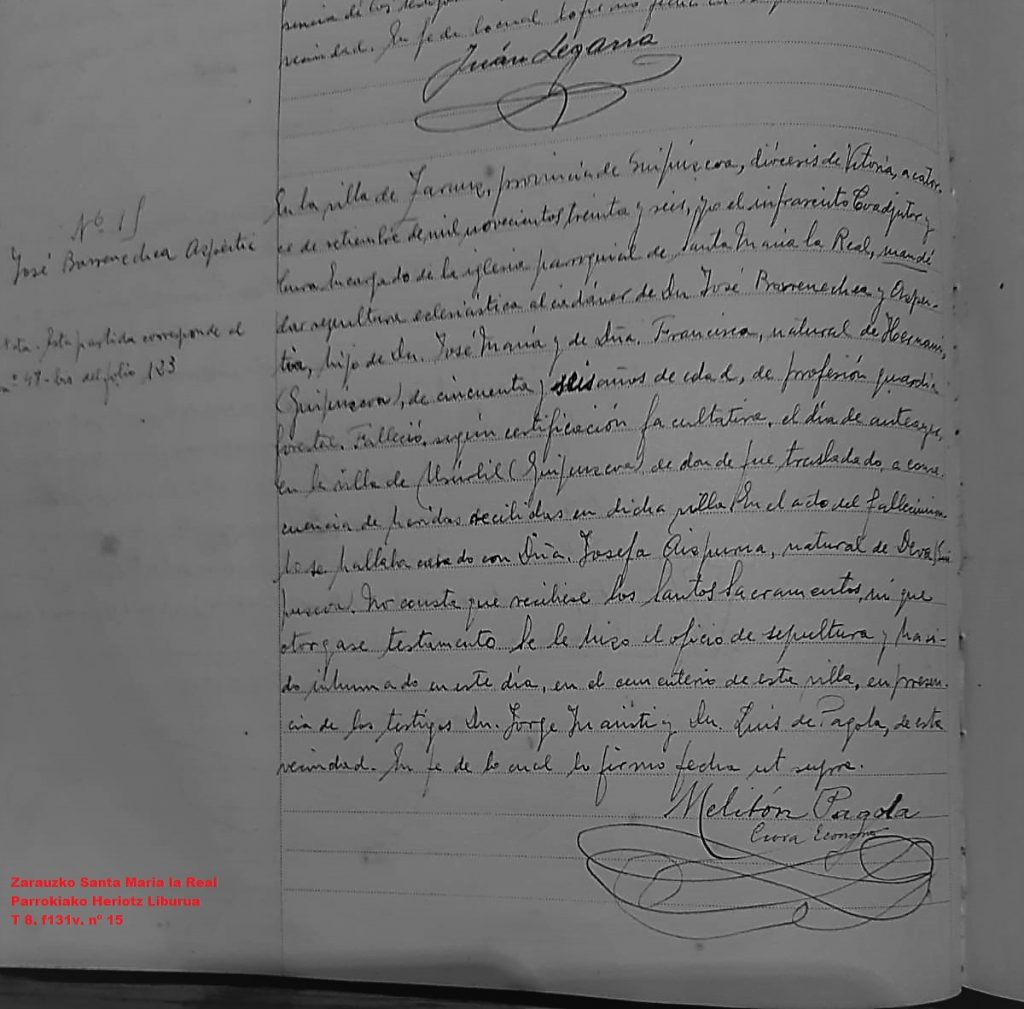 sencia de los testigos
vecindad. En fe de lo cual lo firmo fecha ut supra
Juán Legarra
Nº 15
José Barrenechea Aspeitia
Nota. Esta partida corresponde al
nº 47-bis del folio 133
En la villa de Zarauz, provincia de Guipúzcoa, diócesis de Vitoria, a cator-
ce de setiembre de mil novecientos treinta y seis, yo el infrascrito Coadjutor y
Cura Encargado de la iglesia parroquial de Santa María la Real, mandé
dar sepultura eclesiástica al cadáver de Dn. José Barrenechea y Aspei-
tia, hijo de Dn. José María y de Dña. Francisca, natural de Hernani,
(Guipuzcoa), de cincuenta y seis años de edad, de profesión guardia
forestal. Falleció, según certificación facultativa, el día de anteayer,
en la villa de Usúrbil (Guipuzcoa) de donde fue trasladado, a conse-
cuencia de heridas recibidas en dicha villa. En el acto del fallecimien-
to se hallaba casado con Dña. Josefa Aispurua, natural de Deva (Gui
puzcoa). No consta que recibiese los Santos Sacramentos, ni que
otorgase testamento. Se le hizo el oficio de sepultura y ha si-
do inhumado en este día, en el cementerio de esta villa, en presen-
cia de los testigos Dn. Jorge Inaristi y Dn. Luis de Pagola, de esta
vecindad. En fe de lo cual lo firmo fecha ut supra.
Melitón Pagola
Cura Ecónomo
Zarauzko Santa Maria la Real
Parrokiako Heriotz Liburua
T 8, f131v, nº 15